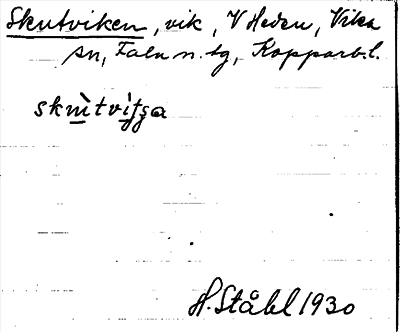 Skutviken, vik, V Heden, Vika
sn, Falu n. tg, Kopparb. l.
H. Ståhl 1930